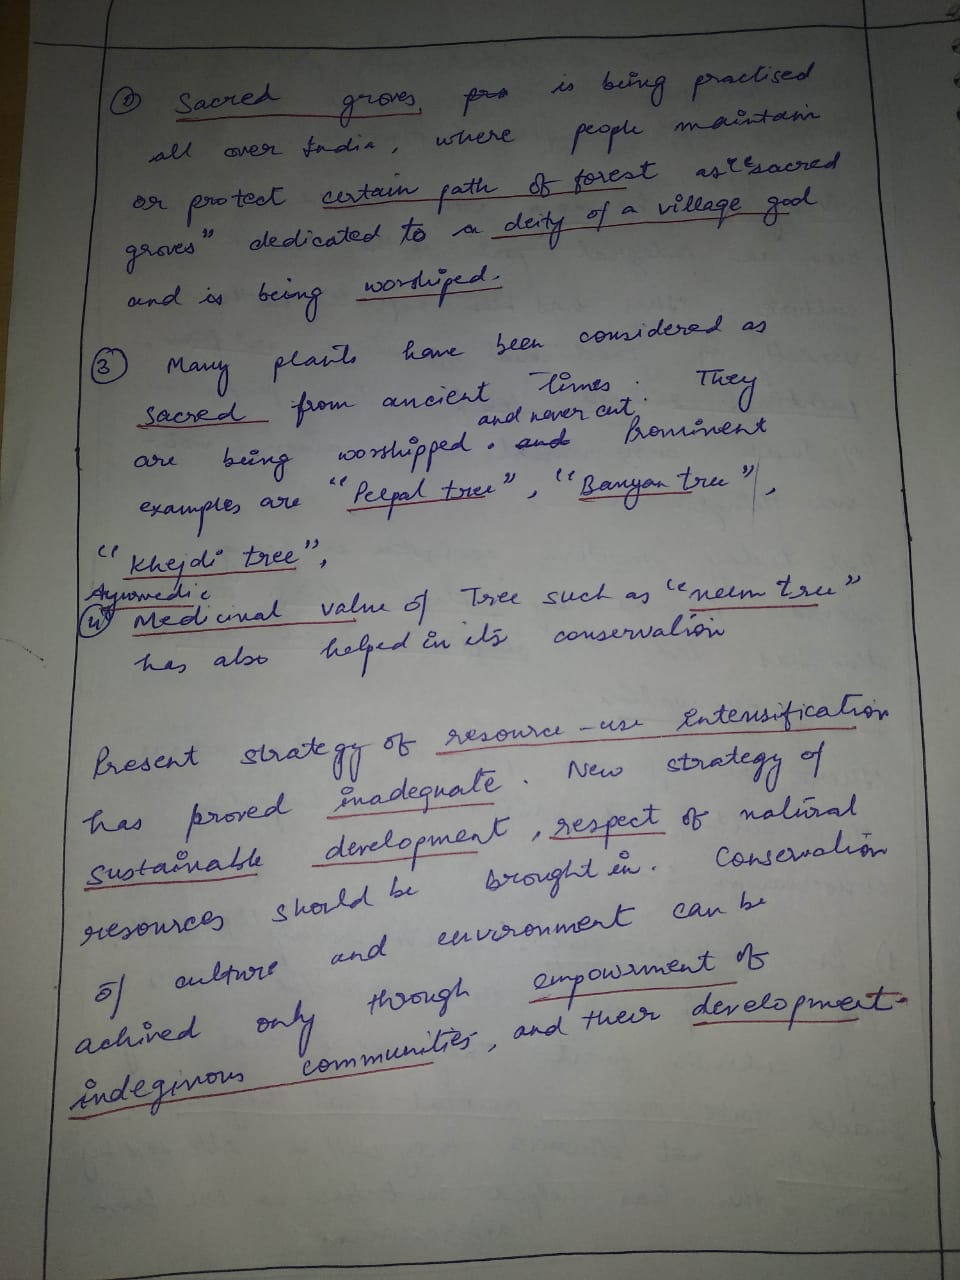 ② Sacred groves, is being practised
all over India, where people maintain
or protect certain path of forest as "sacred
groves" dedicated to a deity of a village god
and is being worshiped.
③ Many plants have been considered as
sacred from ancient times. They
and never cut.
are being worshipped. and Prominent
examples are "Peepal tree", "Banyan tree",
"Khejdi tree",
Ayurvedic
④ Medicinal value of Tree such as "neem tree"
has also helped in its conservation
Present strategy of resource-use intensification
has proved inadequate. New strategy of
sustainable development, respect of natural
resources should be brought in. Conservation
of culture and environment can be
achived only through empowrment of
indeginous communities, and their development.